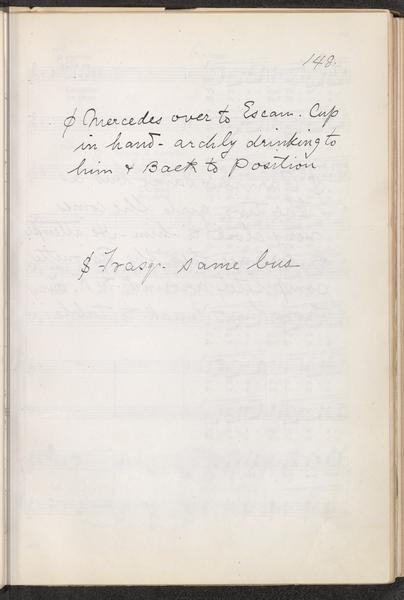 148.
φ Mercedes over to Escam. Cup
in hand - archly drinking to
him & Back to Position
$ Frasq. same bus